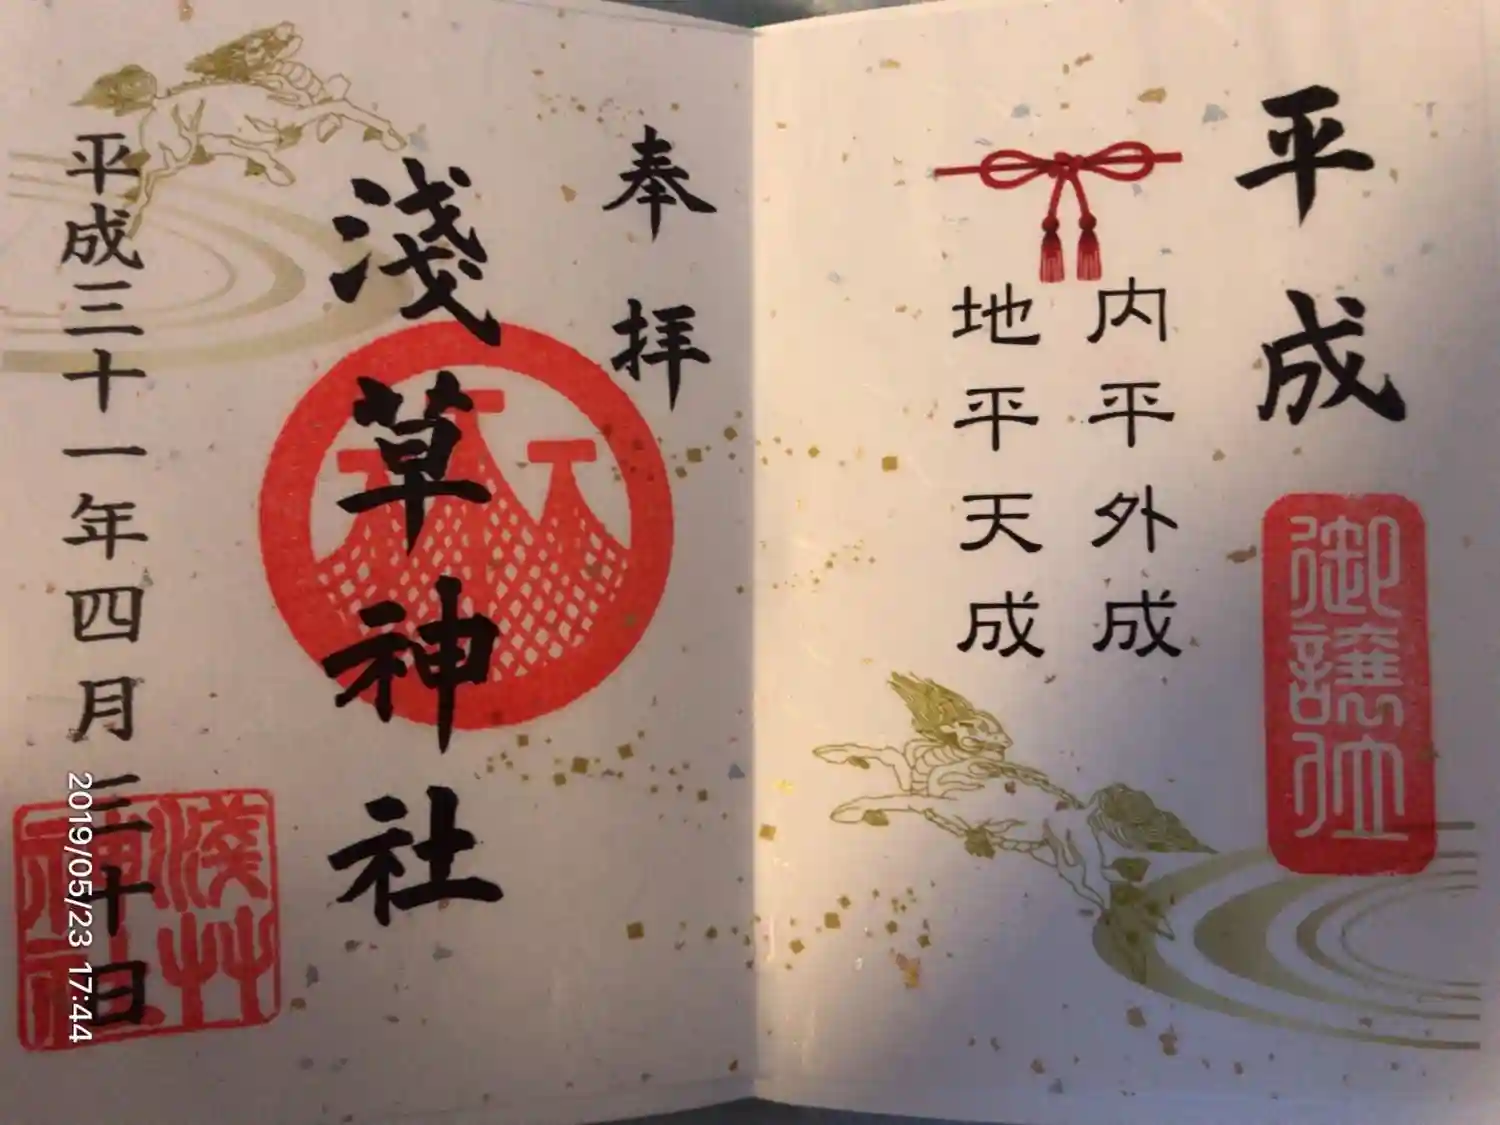 平成
御譲位
内平外成
地平天成
奉拝
淺草神社
平成三十一年四月三十日
淺艸神社
2019/05/23 17:44